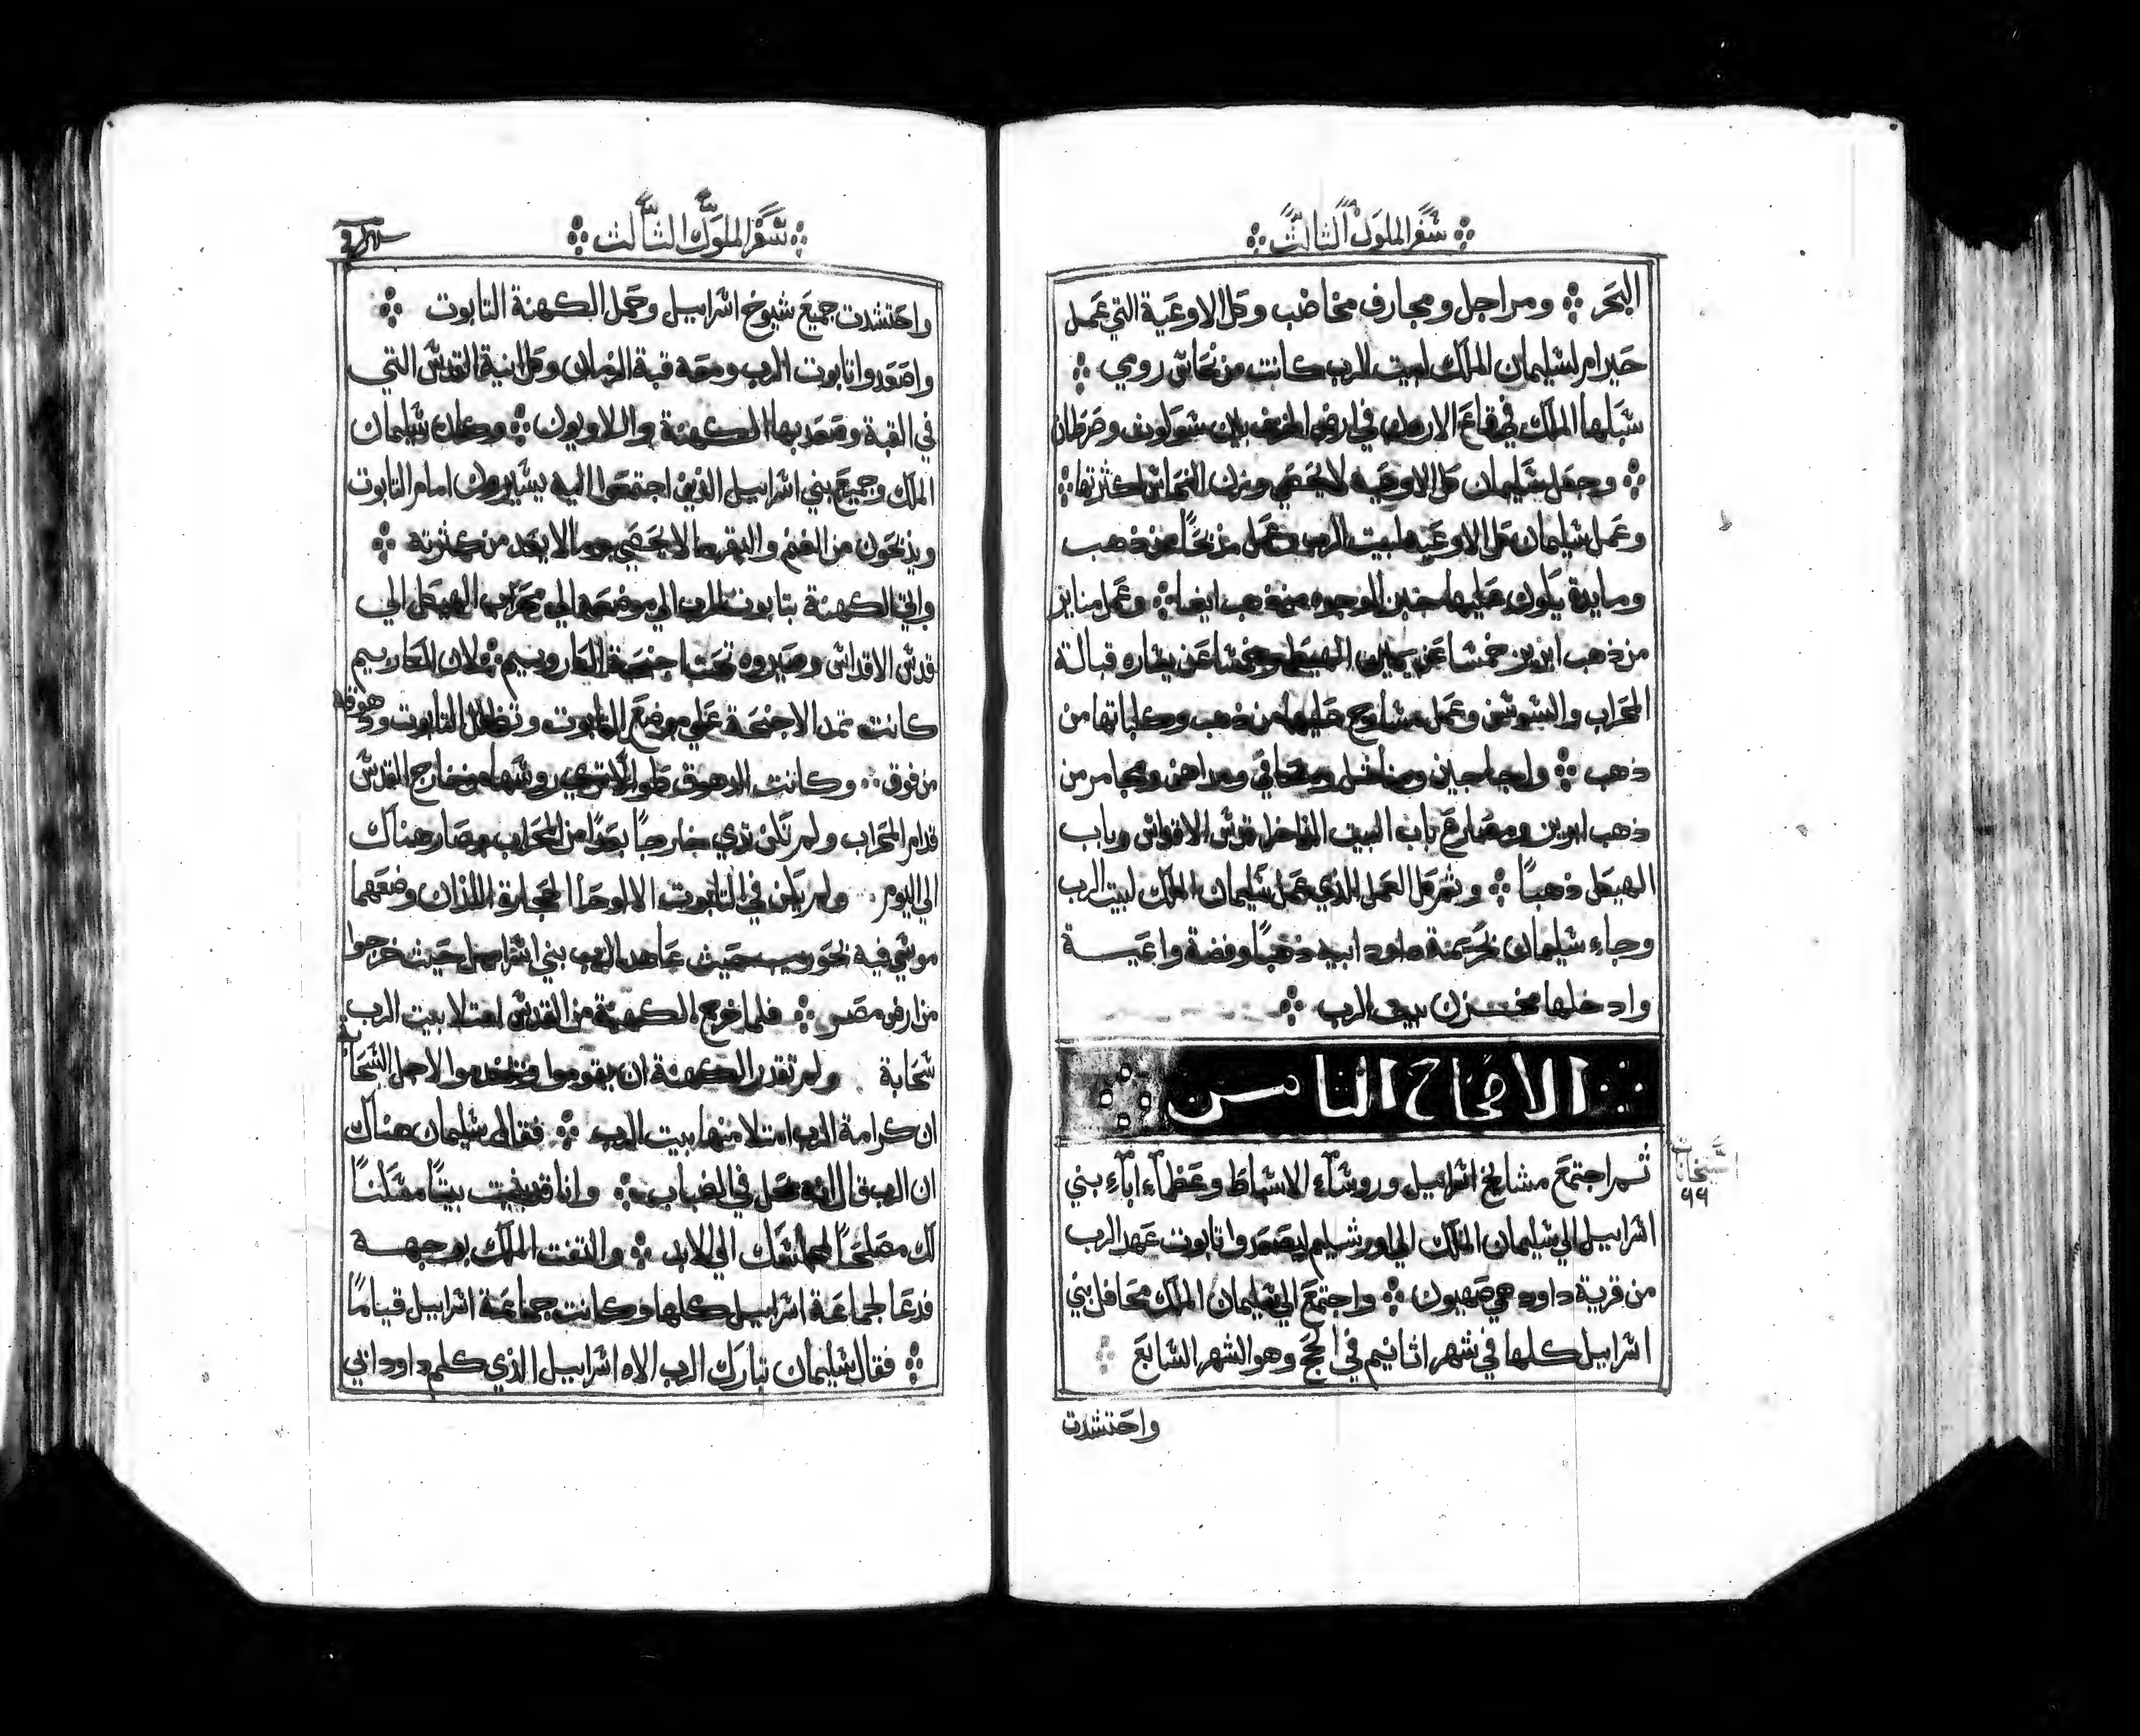 سفر الملوك الثالث
البحر ومراجل ومجارف مخاضب وكل الاوعية التي عمل
حيرام لسليمان الملك لبيت الرب كانت من نحاس رومي
سبكها الملك في قاع الاردن في ارض الخزف بين سوكوت وصرطان
وجعل سليمان كل الاوعيه لا يحصي وزن النحاس لكثرتها
وعمل سليمان كل الاوعيه لبيت الرب وعمل مذبحًا من ذهب
ومايدة يكون عليها خبز الوجوه من ذهب ايضا وعمل منابر
من ذهب ابريز خمسا عن يمين الهيكل وخمسا عن يساره قبالة
المحراب والسوسن وعمل مسارج عليها من ذهب وكلباتها من
ذهب واجاجين ومناشل ومداهن ومجامر من
ذهب ابريز ومصارع باب البيت الداخل قدس الاقداس وباب
الهيكل ذهبًا وتم كل العمل الذي عمل سليمان الملك لبيت الرب
وجاء سليمان بحرمة داود ابيه ذهبًا وفضة واعية
وادخلها مخزن بيت الرب
الاصحاح الثامن
ثم اجتمع مشايخ اسراييل وروساء الاسباط وعظماء اباء بني
اسراييل الي سليمان الملك الي اورشليم ليصعدوا تابوت عهد الرب
من قرية داود هي صهيون واجتمع الي سليمان الملك محافل بني
اسراييل كلها في شهر اثانيم في الحج وهو الشهر السابع
واحتشدت
سفر الملوك الثالث
واحتشدت جميع شيوخ اسراييل وحمل الكهنة التابوت
واصعدوا تابوت الرب ومعه قبة الزمان وكل انية القدس التي
في القبة وصعد بها الكهنة واللاويون وكان سليمان
الملك وجميع بني اسراييل الذين اجتمعوا اليه يسيرون امام التابوت
ويذبحون من الغنم والبقر ما لا يحصي وما لا يعد من كثرته
واتي الكهنة بتابوت الرب الي موضعه الي محراب الهيكل الي
قدس الاقداس وصيروه تحت اجنحة الكاروبيم لان الكاروبيم
كانت تمد الاجنحة علي موضع التابوت وتظلل التابوت ودهوقه
من فوق وكانت الدهوق روسها من خارج القدس
قدام المحراب ولم تكن تري خارجًا بعدًا من المحراب وصار هناك
الي اليوم ولم يكن في التابوت الا لوحا الحجارة اللذان وضعهما
موسي فيه بحوريب حيث عاهد الرب بني اسراييل حيث خرجوا
من ارض مصر فلما خرج الكهنة من القدس امتلا بيت الرب
سحابة ولم تقدر الكهنة ان يقوموا ويخدموا لاجل السحابة
ان كرامة الرب امتلا منها بيت الرب فقال سليمان هناك
ان الرب قال انه يحل في الضباب وانا قد بنيت بيتًا مسكنًا
لك مصلحًا لمجلسك الي الابد والتفت الملك بوجهه
فدعا لجماعة اسراييل كلها وكانت جماعة اسراييل قيامًا
فقال سليمان تبارك الرب الاه اسراييل الذي كلم داود ابي